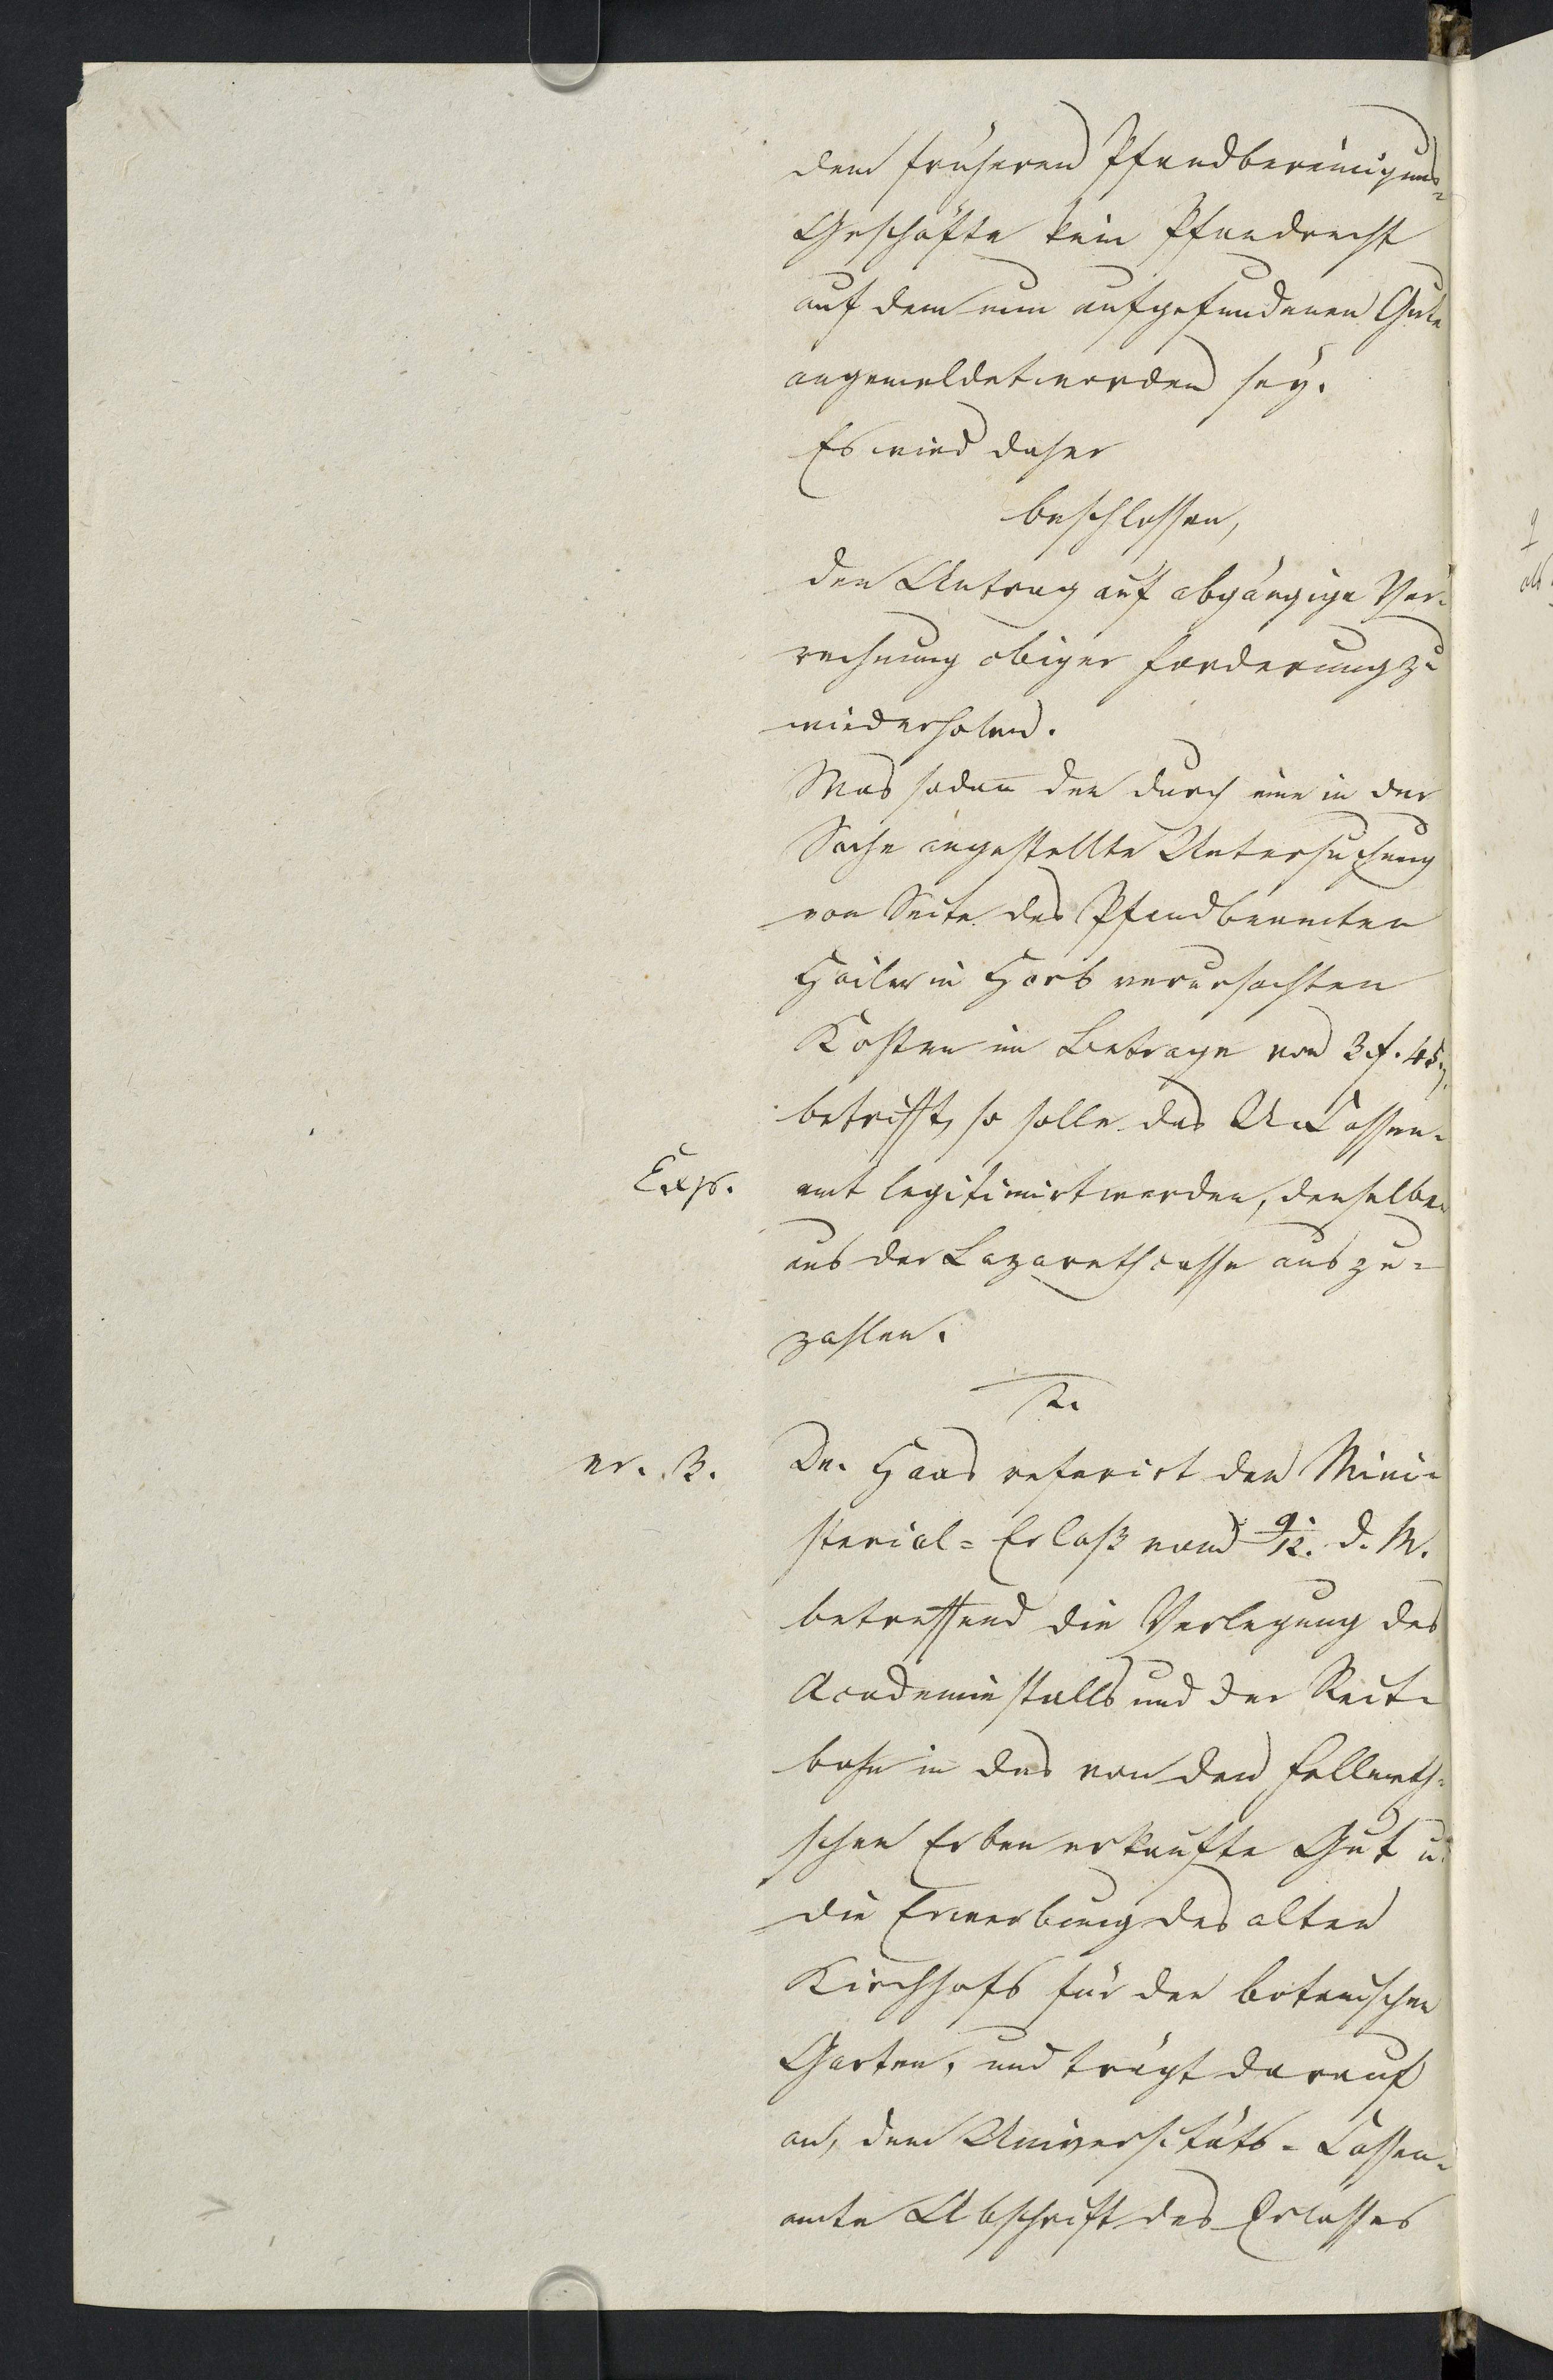 dem früheren Pfandbereinigungs-
Geschäfte kein Pfandrecht
auf dem nun aufgefundenen Gute
angemeldet worden sey.
Es wird daher
beschlossen,
den Antrag auf abgängige Ver-
rechnung obiger Forderung zu
wiederholen.
Was sodann den durch eine in der
Sache angestellte Untersuchung
von Seite des Pfandbeamten
Hailer in Horb verursachten
Kosten im Betrage von 3 f. 45
betrifft, so solle das U Cassen-
Exp. amt legitimirt werden, denselben
aus der Lazarethcasse auszu-
zahlen.
2.
nr. 3. Dr. Haas referirt den Mini-
sterial-Erlaß vom 9/12. d. M.
betreffend die Verlegung des
Academiestalls und der Reit-
bahn in das von den
schen Erben erkaufte Gut u.
die Erwerbung des alten
Kirchhofs für den botanischen
Garten, und trägt darauf
an, dem Universitäts-Cassen-
amte Abschrift des Erlasses